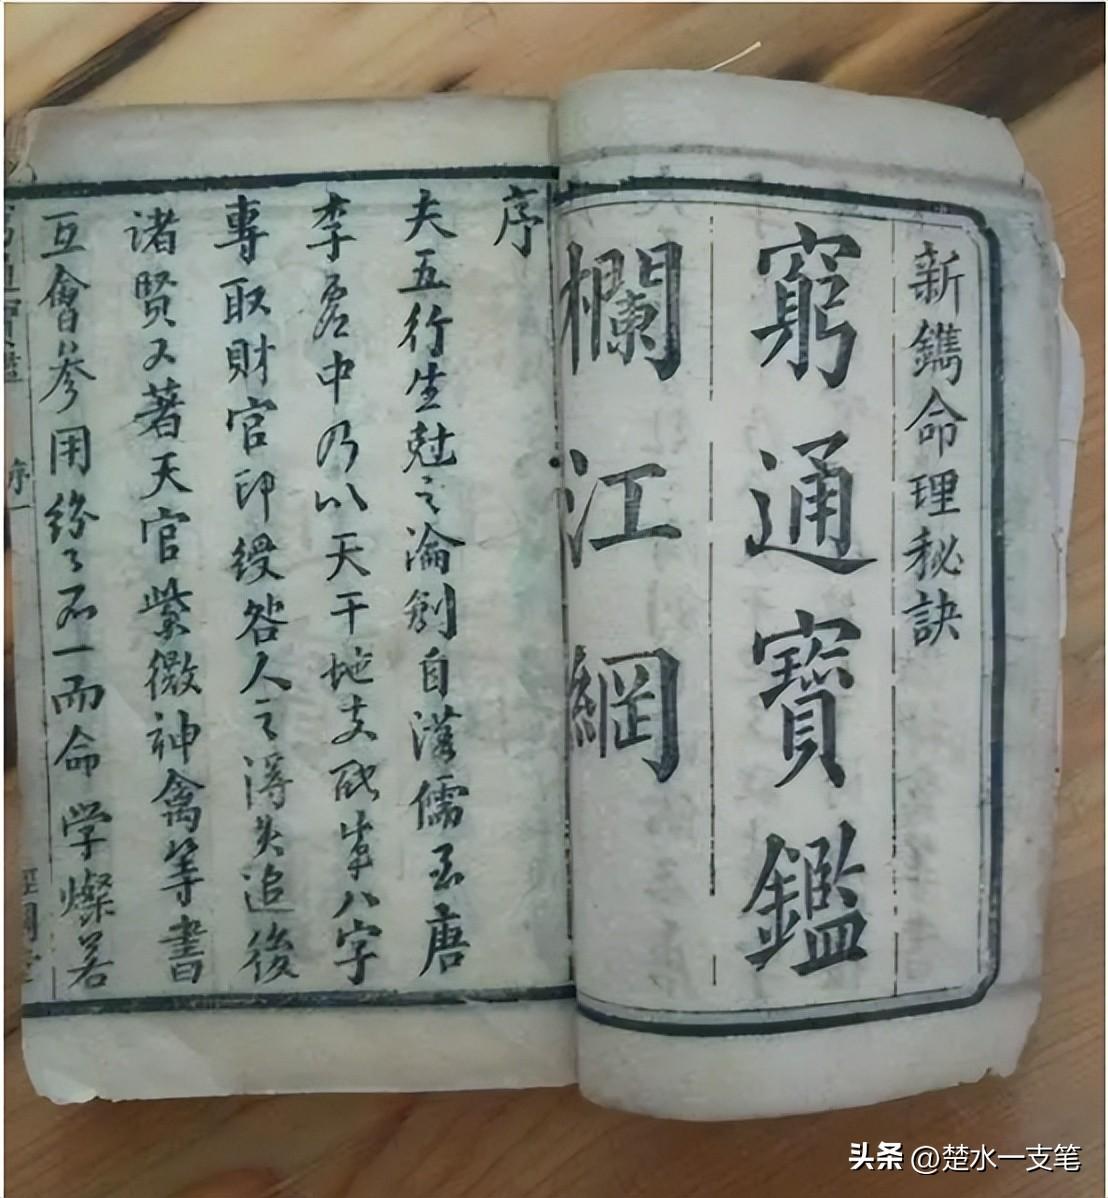 新鐫命理秘訣
窮通寶鑑
欄江網
序
夫五行生尅之淪創自漢儒至唐
李虛中乃以天干地支配成八字
專取財官印綬咎人之得失追後
诸賢又著天官紫微神禽等書
互會參用紛々不一而命学燦若
序一
头条 @楚水一支笔